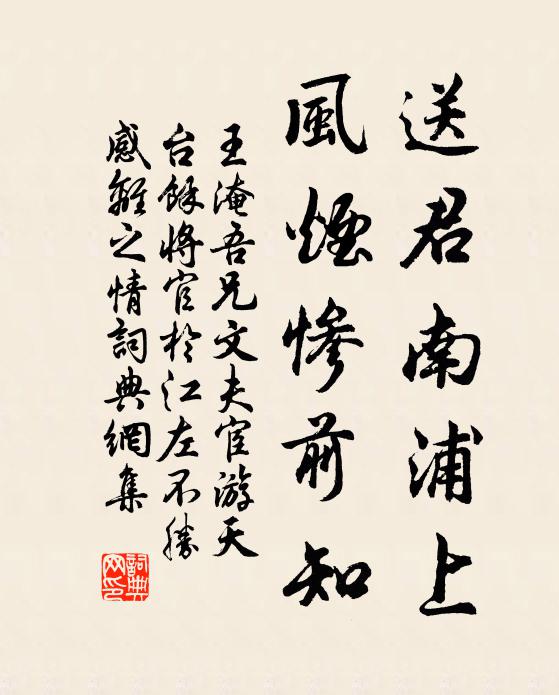 送君南浦上
風煙慘前知
王淹吾兄文夫宦游天
台餘將官於江左不勝
感離之情詞典網集
詞典
网印